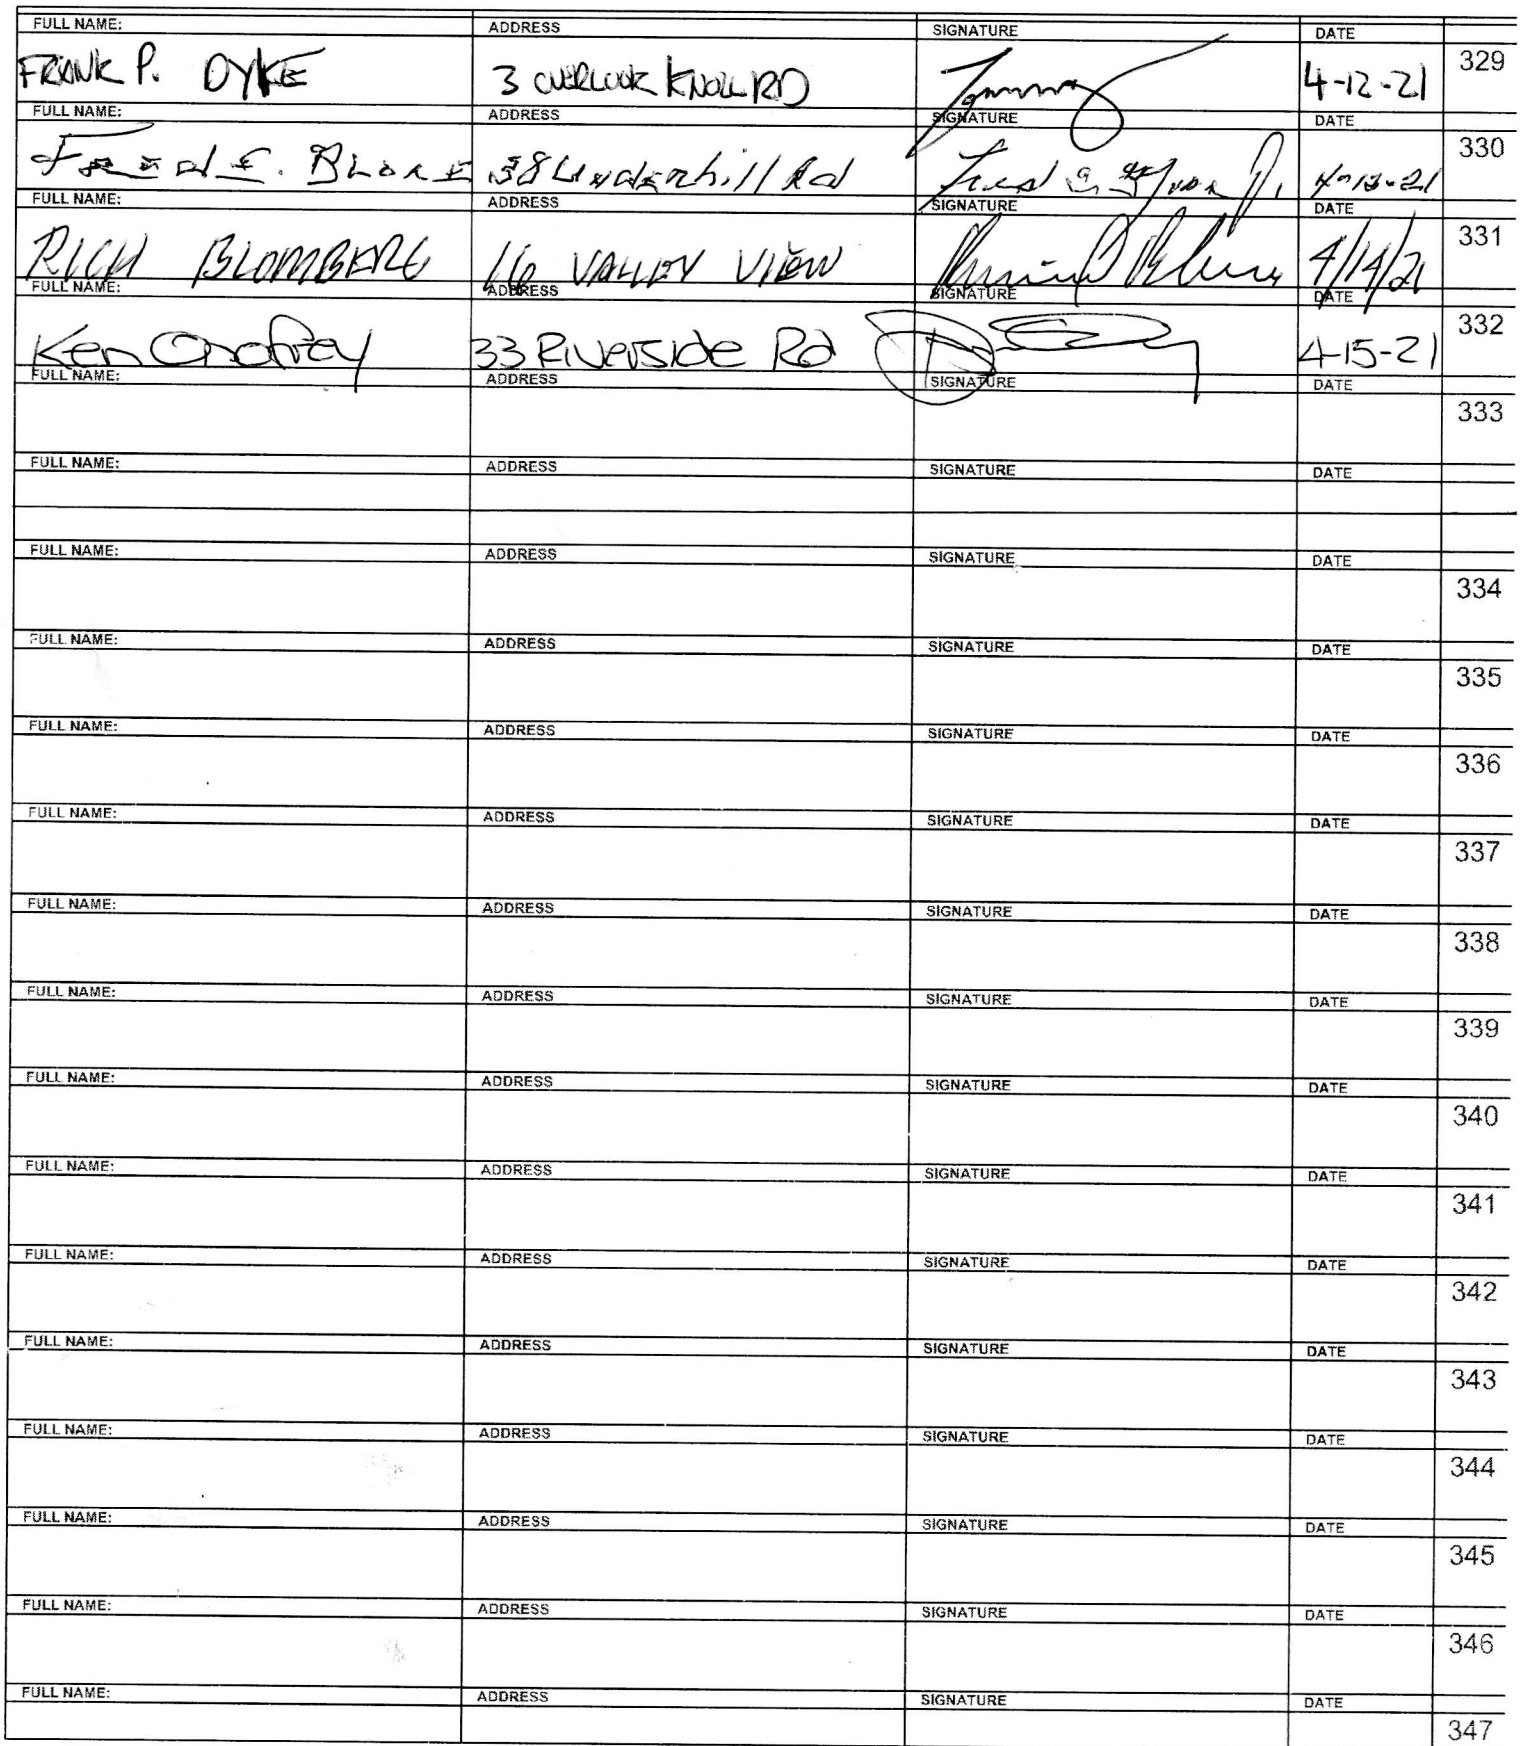 FULL NAME: ADDRESS SIGNATURE DATE
FRANK P. DYKE 3 OVERLOOK KNOLL RD 4-12-21 329
FULL NAME: ADDRESS SIGNATURE DATE
Fred E. 38 Underhill Rd Fred 4-13-21 330
FULL NAME: ADDRESS SIGNATURE DATE
RICH BLOMBERG 16 VALLEY VIEW 4/14/21 331
FULL NAME: ADDRESS SIGNATURE DATE
Ken Onofrey 33 Riverside Rd 4-15-21 332
FULL NAME: ADDRESS SIGNATURE DATE
333
FULL NAME: ADDRESS SIGNATURE DATE
FULL NAME: ADDRESS SIGNATURE DATE
334
FULL NAME: ADDRESS SIGNATURE DATE
335
FULL NAME: ADDRESS SIGNATURE DATE
336
FULL NAME: ADDRESS SIGNATURE DATE
337
FULL NAME: ADDRESS SIGNATURE DATE
338
FULL NAME: ADDRESS SIGNATURE DATE
339
FULL NAME: ADDRESS SIGNATURE DATE
340
FULL NAME: ADDRESS SIGNATURE DATE
341
FULL NAME: ADDRESS SIGNATURE DATE
342
FULL NAME: ADDRESS SIGNATURE DATE
343
FULL NAME: ADDRESS SIGNATURE DATE
344
FULL NAME: ADDRESS SIGNATURE DATE
345
FULL NAME: ADDRESS SIGNATURE DATE
346
FULL NAME: ADDRESS SIGNATURE DATE
347